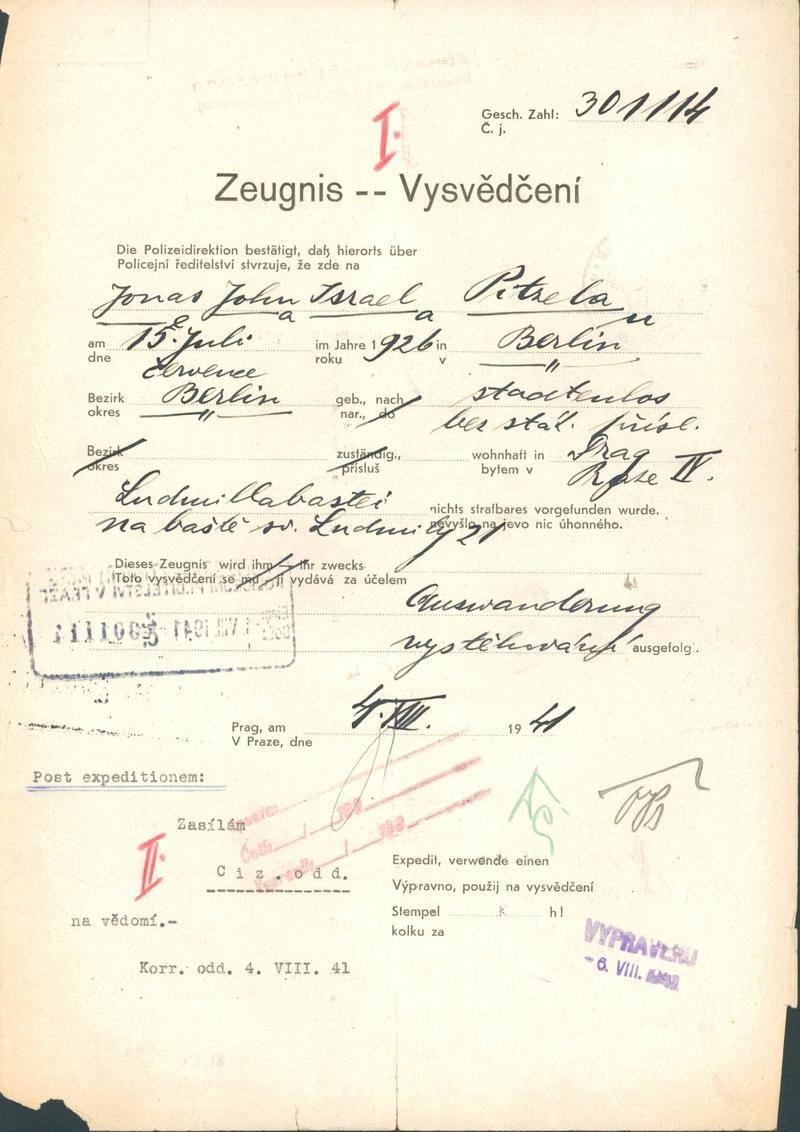 Gesch. Zahl: 301114
Č. j.
I.
Zeugnis -- Vysvědčení
Die Polizeidirektion bestätigt, daß hierorts über
Policejní ředitelství stvrzuje, že zde na
Jonas John Israel Pitzela
e a a u
am 15. Juli im Jahre 1926 in Berlin
dne července roku v "
Bezirk Berlin geb., nach staatenlos
okres " nar., do bez stát. přísl.
Bezirk zuständig., wohnhaft in Prag
okres přísluš bytem v Praze IV.
Ludmillabastei nichts strafbares vorgefunden wurde.
na baště sv. Ludmily 21 nevyšlo na jevo nic úhonného.
Dieses Zeugnis wird ihm - ihr zwecks
Toto vysvědčení se mu - jí vydává za účelem
Auswanderung
vystěhování ausgefolg.
Prag, am 4. VIII. 1941
V Praze, dne
Post expeditionem:
Zasílám
II.
Ciz. odd.
na vědomí.-
Korr. odd. 4. VIII. 41
Expedit, verwende einen
Výpravno, použij na vysvědčení
Stempel K h!
kolku za
VYPRAVENO
- 6. VIII. 1941